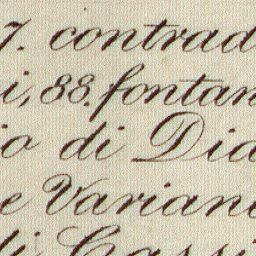 7. contrad
i, 88. fontan
io di Dia
e Varian
di Cassi